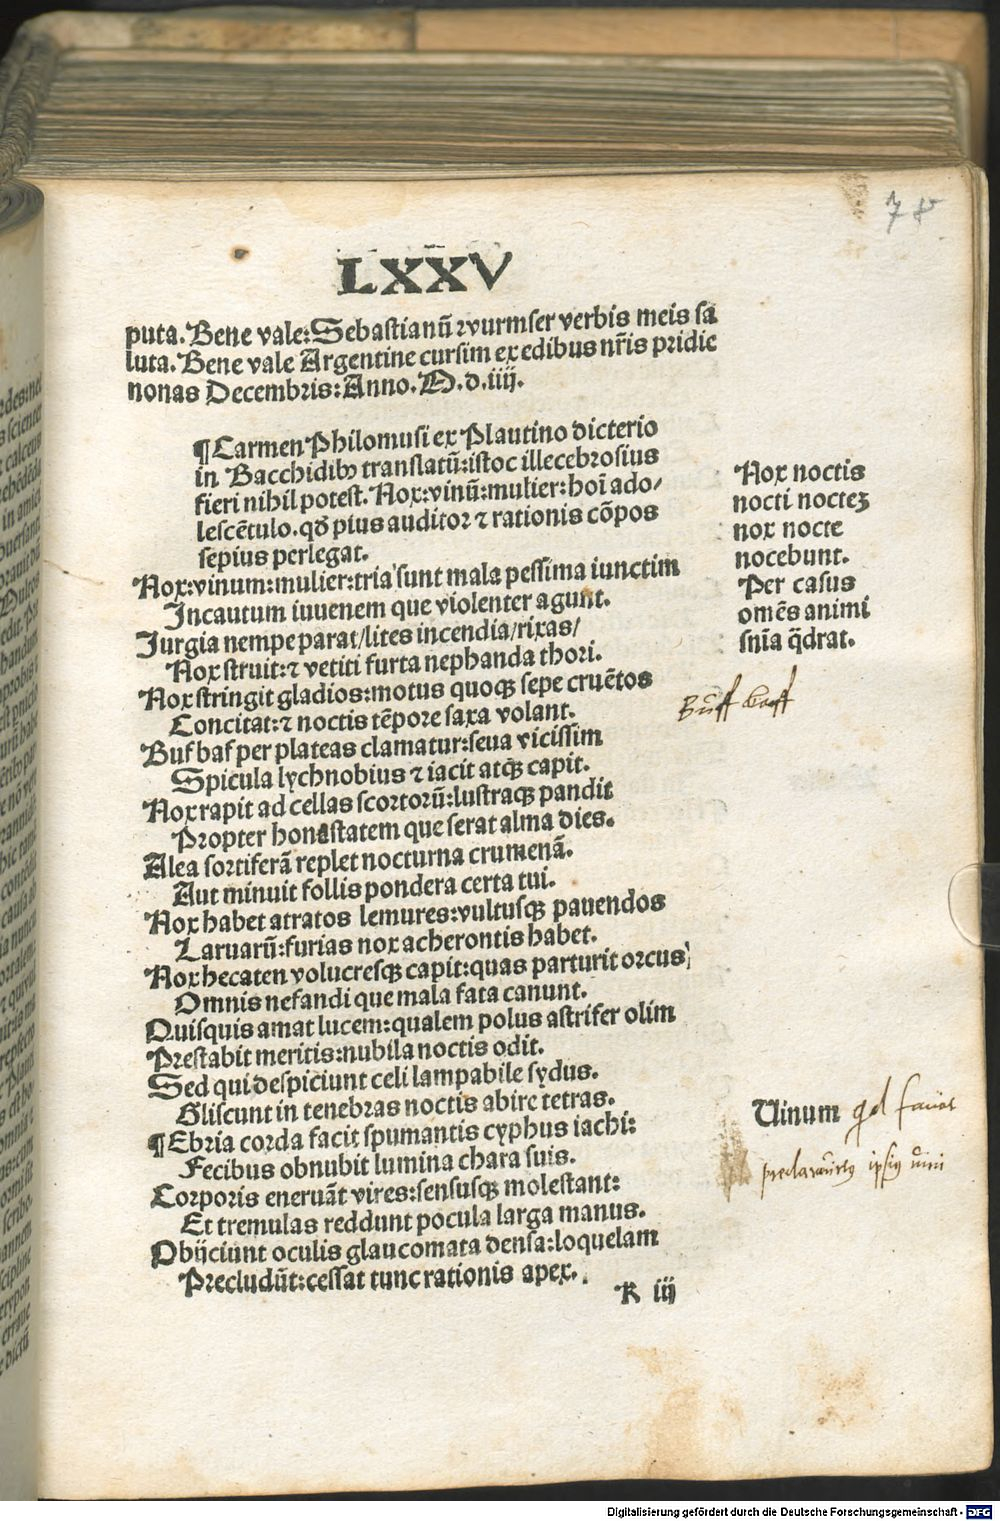 78
LXXV
puta. Bene vale: Sebastianū wurmser verbis meis sa
luta. Bene vale Argentine cursim ex edibus nr̄is pridie
nonas Decembris: Anno. M.d.iiij.
¶ Carmen Philomusi ex Plautino dicterio
in Bacchidibꝫ translatū: istoc illecebrosius
fieri nihil potest. Nox: vinū: mulier: hoī ado/
lescētulo. qd̄ pius auditor ⁊ rationis cōpos
sepius perlegat.
Nox: vinum: mulier: tria sunt mala pessima iunctim
Incautum iuuenem que violenter agunt.
Jurgia nempe parat/ lites incendia/ rixas/
Nox struit: ⁊ vetiti furta nephanda thori.
Nox stringit gladios: motus quoqꝫ sepe cruētos
Concitat: ⁊ noctis tēpore saxa volant.
Buf baf per plateas clamatur: seua vicissim
Spicula lychnobius ⁊ iacit atqꝫ capit.
Nox rapit ad cellas scortorū: lustraqꝫ pandit
Propter honestatem que serat alma dies.
Alea sortiferā replet nocturna crumenā.
Aut minuit follis pondera certa tui.
Nox habet atratos lemures: vultusqꝫ pauendos
Laruarū: furias nox acherontis habet.
Nox hecaten volucresqꝫ capit: quas parturit orcus
Omnis nefandi que mala fata canunt.
Quisquis amat lucem: qualem polus astrifer olim
Prestabit meritis: nubila noctis odit.
Sed qui despiciunt celi lampabile sydus.
Gliscunt in tenebras noctis abire tetras.
¶ Ebria corda facit spumantis cyphus iachi:
Fecibus obnubit lumina chara suis.
Corporis eneruāt vires: sensusqꝫ molestant:
Et tremulas reddunt pocula larga manus.
Obijciunt oculis glaucomata densa: loquelam
Precludūt: cessat tunc rationis apex.
K iij
Nox noctis
nocti noctez
nox nocte
nocebunt.
Per casus
omēs animi
snīa q̄drat.
Buff baff
Uinum
ipsius vini
Digitalisierung gefördert durch die Deutsche Forschungsgemeinschaft - DFG